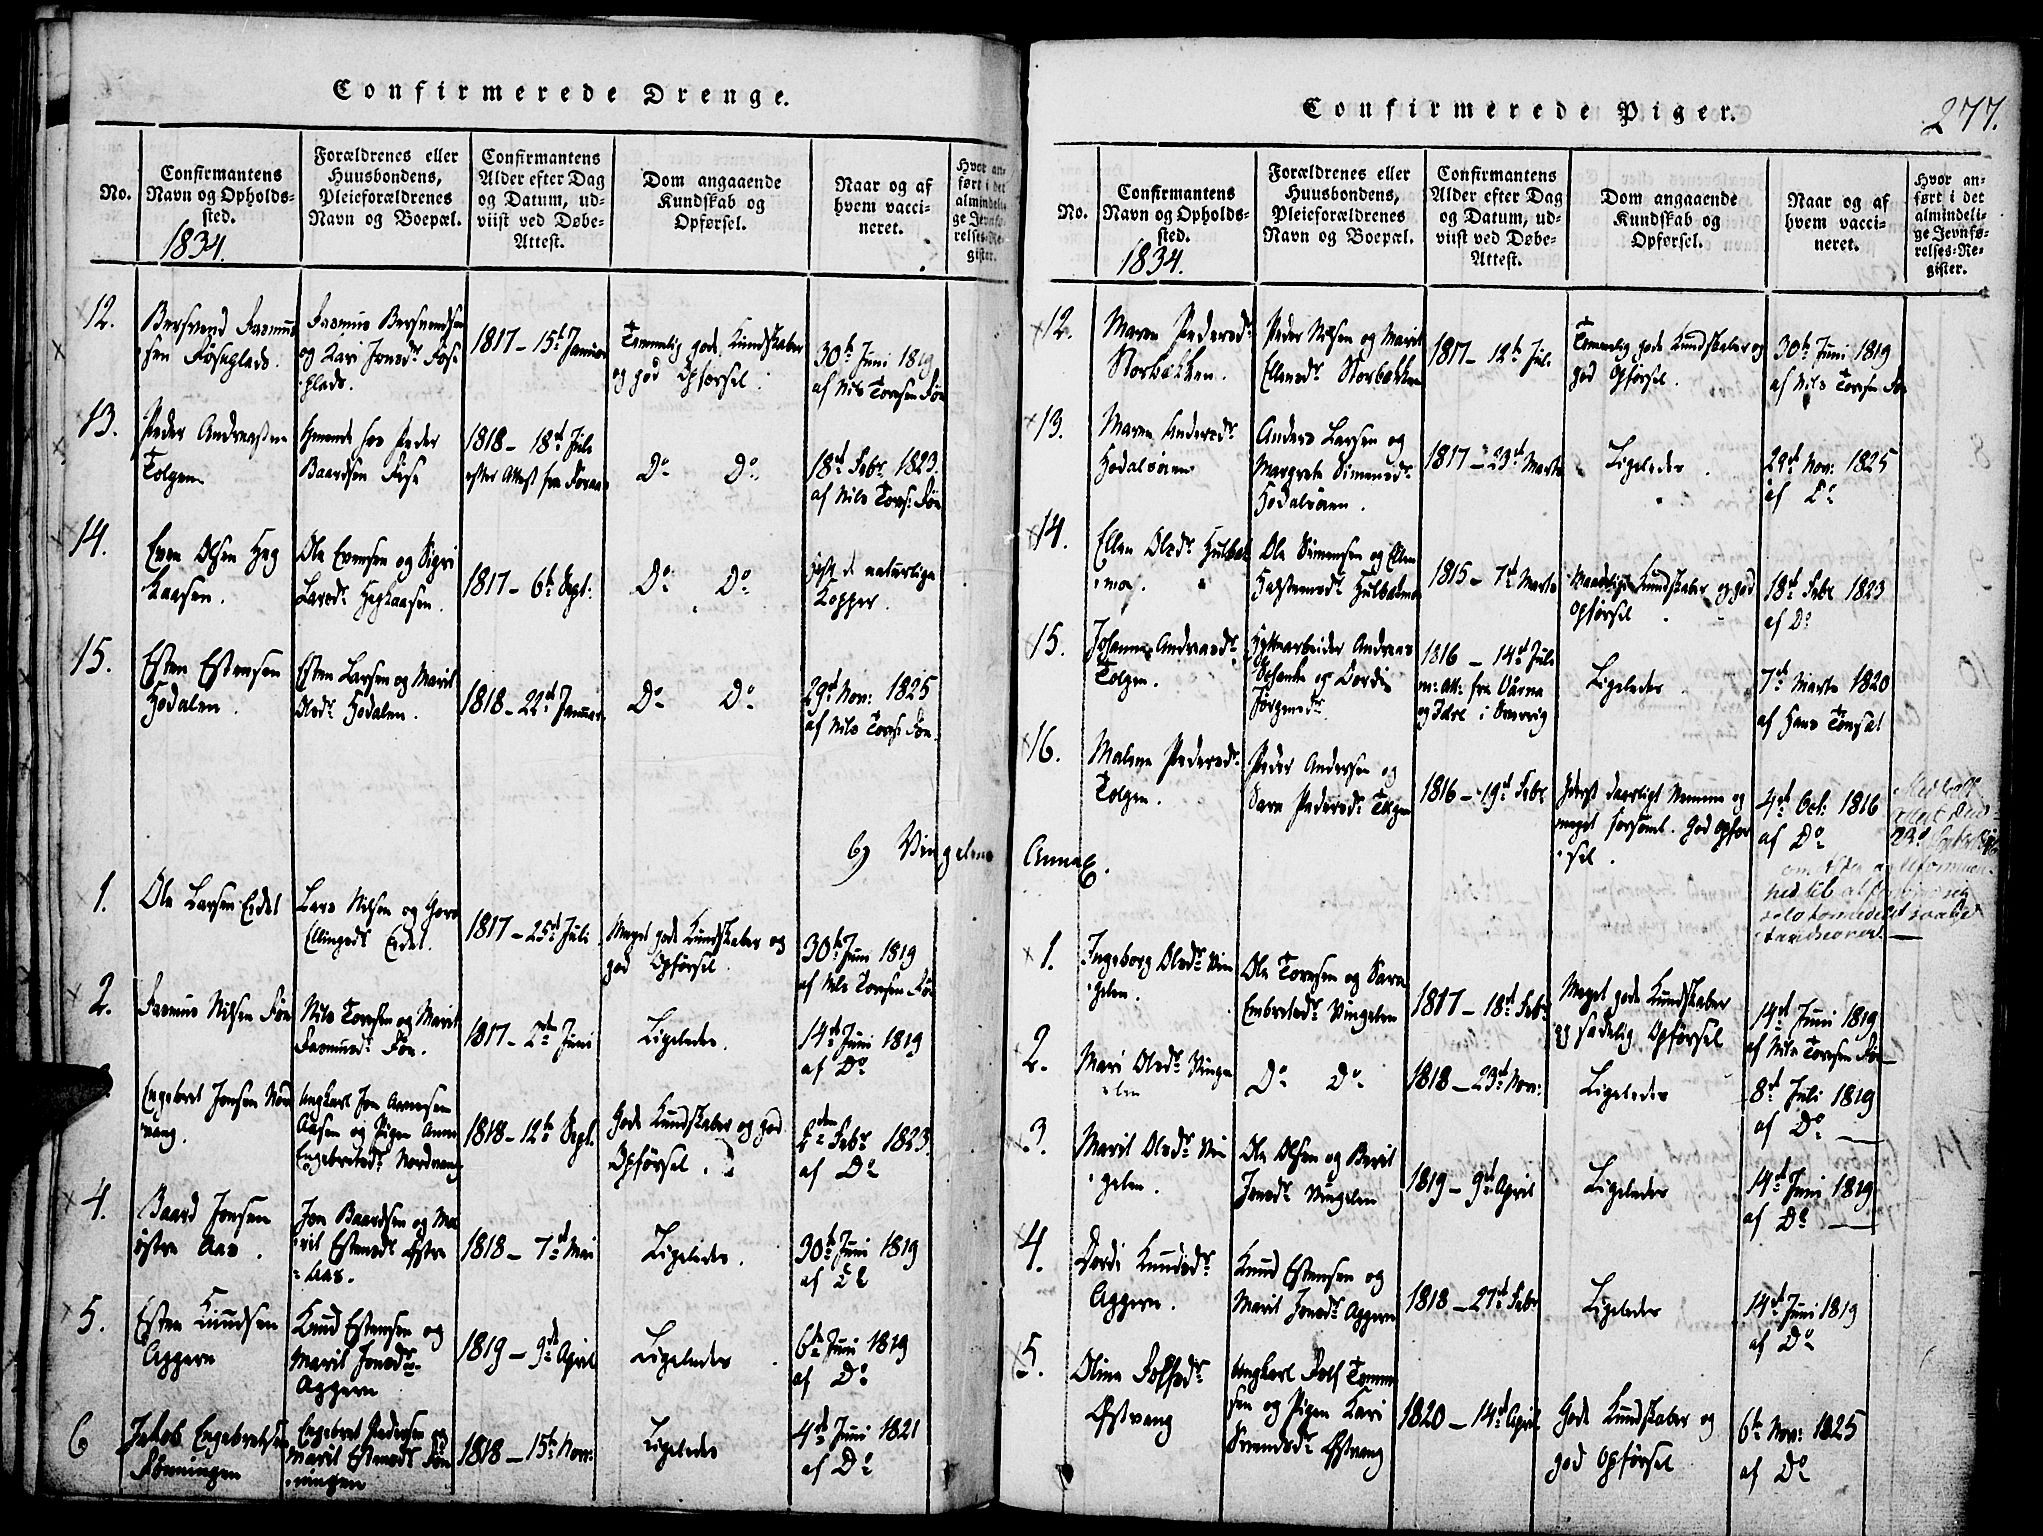 Confirmerede Drenge.
No.
Confirmantens
Navn og Opholds-
sted.
1834.
Forældrenes eller
Huusbondens,
Pleieforældrenes
Navn og Boepæl.
Confirmantens
Alder efter Dag
og Datum, ud-
viist ved Døbe-
Attest.
Dom angaaende
Kundskab og
Opførsel.
Naar og af
hvem vacci-
neret.
Hvor an-
ført i det
almindeli-
ge Jevnfø-
relses-Re-
gister.
12.
Bersvend Rasmus
sen
Rasmus Bersvendsen
og Kari Jonsdr
1817 – 15de Januar
Temmelig gode Kundskaber
og god Opførsel.
30te Juni 1819
af Nils Toresen Røe
13.
Peder Andreassen
Tolgen
hos Peder
Baardsen
1818 – 18de Juli
efter Attest fra
Do Do
18de Febr. 1823.
af Nils Tores: Røe
14.
Even Olsen Heg
kaasen.
Ole Evensen og Sigri
Larsdr Hegkaasen.
1817 – 6te Sept:
Do Do
Havt d naturlige
Kopper.
15.
Esten Estensen
Hodalen.
Esten Larsen og Marit
Olsdr Hodalen.
1818 – 22de Januar
Do Do
29de Nov: 1825
af Nils Tores: Røe.
b) Vingelens
1.
Ole Larsen Eidet
Lars Nilsen og Goro
Ellingsdr Eidet.
1817 – 25de Juli
Meget gode Kundskaber og
god Opførsel.
30te Juni 1819
af Nils Toresen Røe
2.
Rasmus Nilsen Røe
Nils Toresen og Marit
Rasmusdr Røe.
1817 – 2den Juni
Ligeledes.
14de Juni 1819
af Do
Engebret Jonsen Nord
vang.
Ungkarl Jon Arnesen
Aasen og Pigen Anne
Engebretsdr Nordvang
1818 – 12te Sept.
Gode Kundskaber og god
Opførsel.
2den Febr. 1823.
af Do
4.
Baard Jonsen
østre Aas.
Jon Baardsen og Ma-
rit Estensdr Østre
Aas.
1818 – 7de Mai
Ligeledes.
30te Juni 1819
af Do
5.
Esten Knudsen
Aggern
Knud Estensen og
Marit Jonsdr
Aggern
1819 – 9de April
Ligeledes
6te Juni 1819
af Do
6
Jakob Engebretsen
Rønningen
Engebret Pedersen og
Marit Estensdr Røn
ningen
1818 – 15te Nov:
Ligeledes
4de Juni 1821
af Do
Confirmerede Piger.
277.
No.
Confirmantens
Navn og Opholds-
sted.
1834.
Forældrenes eller
Huusbondens,
Pleieforældrenes
Navn og Boepæl.
Confirmantens
Alder efter Dag
og Datum, ud-
viist ved Døbe-
Attest.
Dom angaaende
Kundskab og
Opførsel.
Naar og af
hvem vacci-
neret.
Hvor an-
ført i det
almindeli-
ge Jevnfø-
relses-Re-
gister.
12.
Maren Pedersdr
Storbækken.
Peder Nilsen og Marit
Ellensdr Storbækken
1817 – 12te Juli
Temmelig gode Kundskaber og
god Opførsel.
30te Juni 1819
af Nils Toresen Røe
13.
Maren Andersdr
Hodalsøien
Anders Larsen og
Margrete Simensdr
Hodalsøien.
1817 – 23de Marts
Ligeledes.
29de Nov: 1825
af Do
14.
Ellen Olsdr Hulbæk
moe.
Ole Simensen og Ellen
Halstensdr Hulbækmoe
1815 – 7de Marts
Maadelige Kundskaber og god
Opførsel.
18de Febr 1823
af Do
15.
Johanne Andreasdr
Tolgen.
Hyttearbeider Andreas
og Dordi
Jørgensdr
1816 – 14de Juli
m: Att: fra Särna
og Idre i Sverrig
Ligeledes.
7de Marts 1820
af Hans Tønset
16.
Malene Pedersdr
Tolgen.
Peder Andersen og
Sara Pedersdr Tolgen
1816 – 19de Febr
Yderst daarligt Nemme og
meget forsømt. God Opfør
sel.
4de Oct: 1816
af Do
AnneX.
1.
Ingeborg Olsdr Vin
gelen.
Ole Toresen og Sara
Embretsdr Vingelen
1817 – 18de Febr
Meget gode Kundskaber
og sædelig Opførsel
14de Juni 1819
af Nils Toresen Røe
2.
Mari Olsdr Vinge
len
Do Do
1818 – 23de Nov:
Ligeledes
8de Juli 1819
af Do
3.
Marit Olsdr Vin
gelen.
Ole Olsen og Berit
Jonsdr Vingelen
1819 – 9de April
Ligeledes
14de Juni 1819
af Do
4.
Dordi Knudsdr
Aggern.
Knud Estensen og
Marit Jonsdr Aggern
1818 – 27de Febr
Ligeledes
14de Juni 1819
af Do
5.
Olina Rolfsdr
Østvang
Ungkarl Rolf Tomme
sen og Pigen Kari
Svendsdr Østvang
1820 – 14de April
Gode Kundskaber og
god Opførsel
6te Nov: 1825
af Do